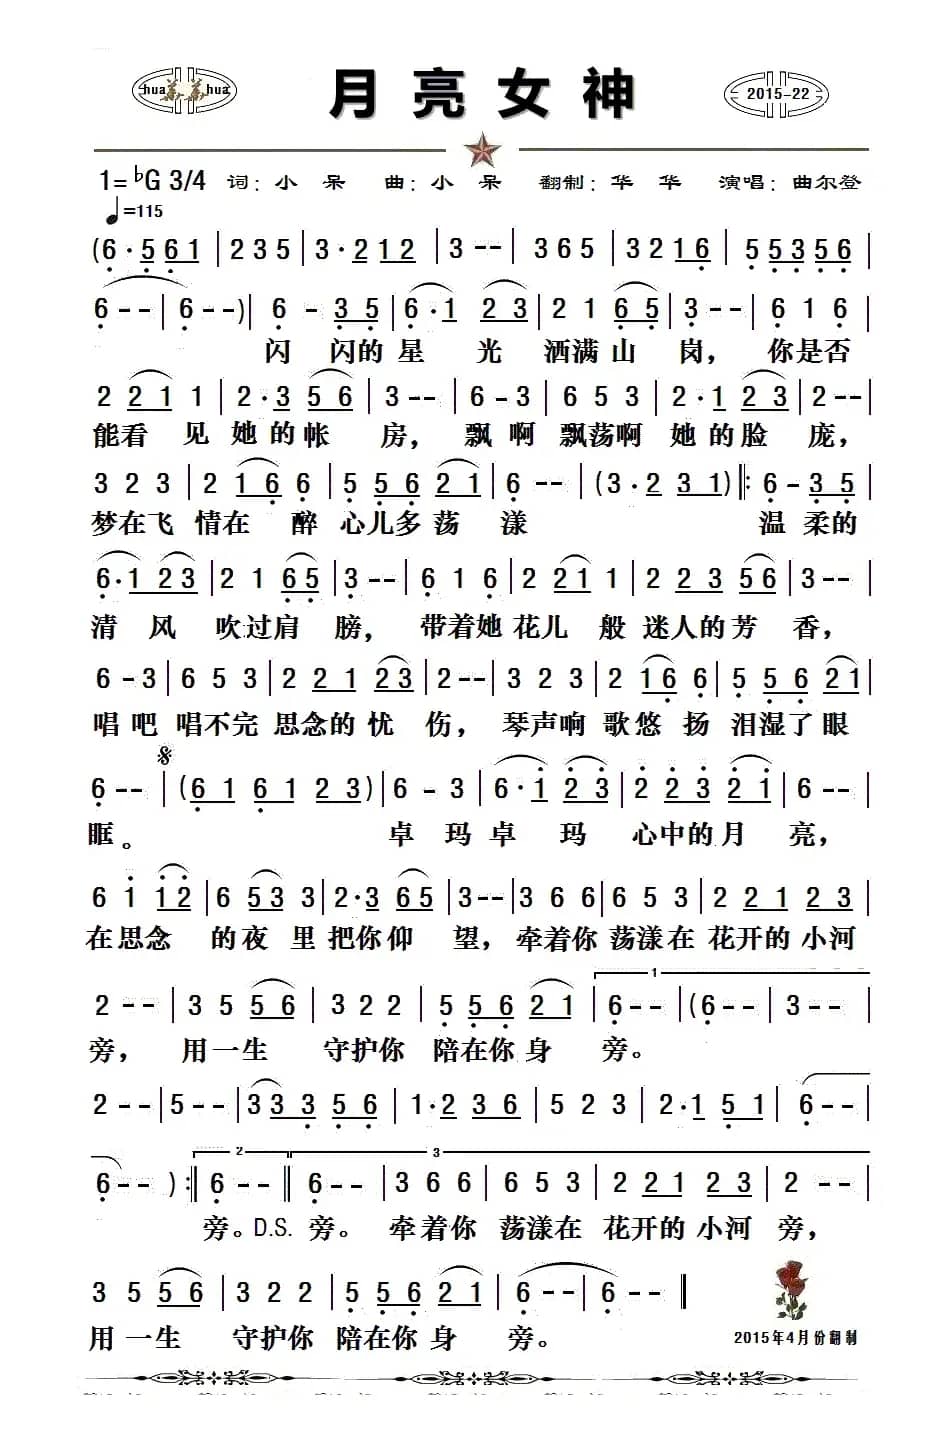 hua 华华 hua
月亮女神
2015-22
1=♭G 3/4 词：小 呆 曲：小 呆 翻制：华 华 演唱：曲尔登
♩=115
(6·561 | 235 | 3·212 | 3-- | 365 | 3216 | 55356 |
6-- | 6--) | 6-35 | 6·123 | 2165 | 3-- | 616 |
闪 闪的 星 光 洒满 山 岗， 你是否
2211 | 2·356 | 3-- | 6-3 | 653 | 2·123 | 2-- |
能看 见 她 的 帐 房， 飘 啊 飘荡啊 她 的 脸 庞，
323 | 2166 | 55621 | 6-- | (3·231) |: 6-35 |
梦在飞 情在 醉 心儿多 荡 漾 温 柔的
6·123 | 2165 | 3-- | 616 | 2211 | 22356 | 3-- |
清 风 吹过肩 膀， 带着她 花儿 般 迷人的芳 香，
6-3 | 653 | 22123 | 2-- | 323 | 2166 | 55621 |
唱 吧 唱不完 思念的 忧 伤， 琴声响 歌悠 扬 泪湿了 眼
6-- | (616123) | 6-3 | 6·123 | 22321 | 6-- |
眶。 卓 玛 卓 玛 心中的 月 亮，
6112 | 6533 | 2·365 | 3-- | 366 | 653 | 22123 |
在思念 的夜 里 把你仰 望， 牵着你 荡漾在 花开的 小河
1
2-- | 3556 | 322 | 55621 | 6-- | (6-- | 3-- |
旁， 用一生 守护你 陪在你 身 旁。
2-- | 5-- | 33356 | 1·236 | 523 | 2·151 | 6-- |
2 3
6--) :| 6-- || 6-- | 366 | 653 | 22123 | 2-- |
旁。D.S. 旁。 牵着你 荡漾在 花开的 小河 旁，
3556 | 322 | 55621 | 6-- | 6-- ||
用 一生 守护你 陪在你 身 旁。
2015年4月份翻制